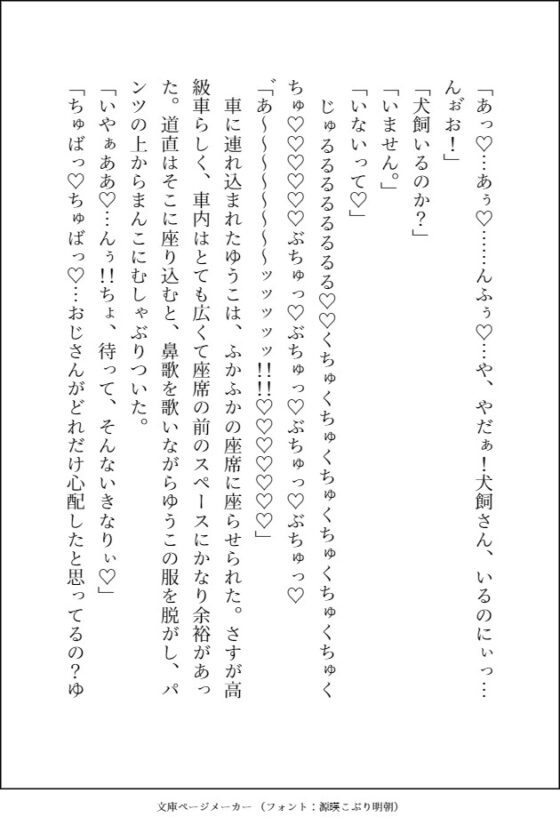 「あっ♡…あぅ♡……んふぅ♡…や、やだぁ！犬飼さん、いるのにぃっ…
んぉ゛お！」
「犬飼いるのか？」
「いません。」
「いないって♡」
　じゅるるるるるるるる♡♡くちゅくちゅくちゅくちゅくちゅくちゅく
ちゅ♡♡♡♡♡ぶちゅっ♡ぶちゅっ♡ぶちゅっ♡ぶちゅっ♡
「゛あ〜〜〜〜〜〜〜ッッッッッ!!!!♡♡♡♡♡♡♡」
　車に連れ込まれたゆうこは、ふかふかの座席に座らせられた。さすが高
級車らしく、車内はとても広くて座席の前のスペースにかなり余裕があっ
た。道直はそこに座り込むと、鼻歌を歌いながらゆうこの服を脱がし、パ
ンツの上からまんこにむしゃぶりついた。
「いやぁああ♡…んぅ!!ちょ、待って、そんないきなりぃ♡」
「ちゅばっ♡ちゅばっ♡…おじさんがどれだけ心配したと思ってるの？ゆ
文庫ページメーカー（フォント：源暎こぶり明朝）